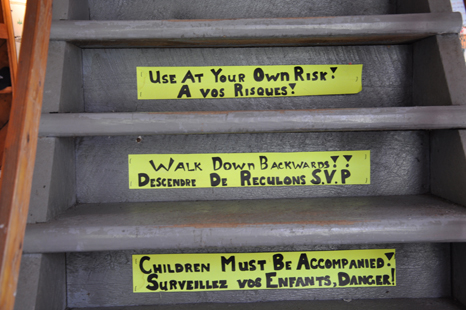 Use At Your Own Risk!
A vos Risques!
Walk Down Backwards!!
Descendre De Reculons S.V.P
Children Must Be Accompanied!
Surveillez vos Enfants, Danger!